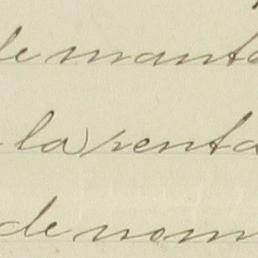 de manta
la renta
de nom